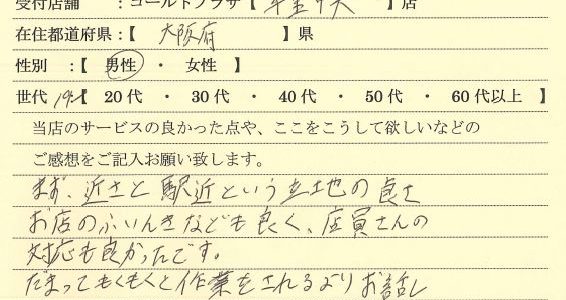 受付店舗 :ゴールドプラザ【 】店
在住都道府県:【 大阪府 】県
性別 :【 男性 ・ 女性 】
世代 19才【 20代 ・ 30代 ・ 40代 ・ 50代 ・ 60代以上 】
当店のサービスの良かった点や、ここをこうして欲しいなどの
ご感想をご記入お願い致します。
まず、近さと駅近という立地の良さ
お店のふいんきなども良く、店員さんの
対応も良かったです。
だまってもくもくと作業をされるよりお話し